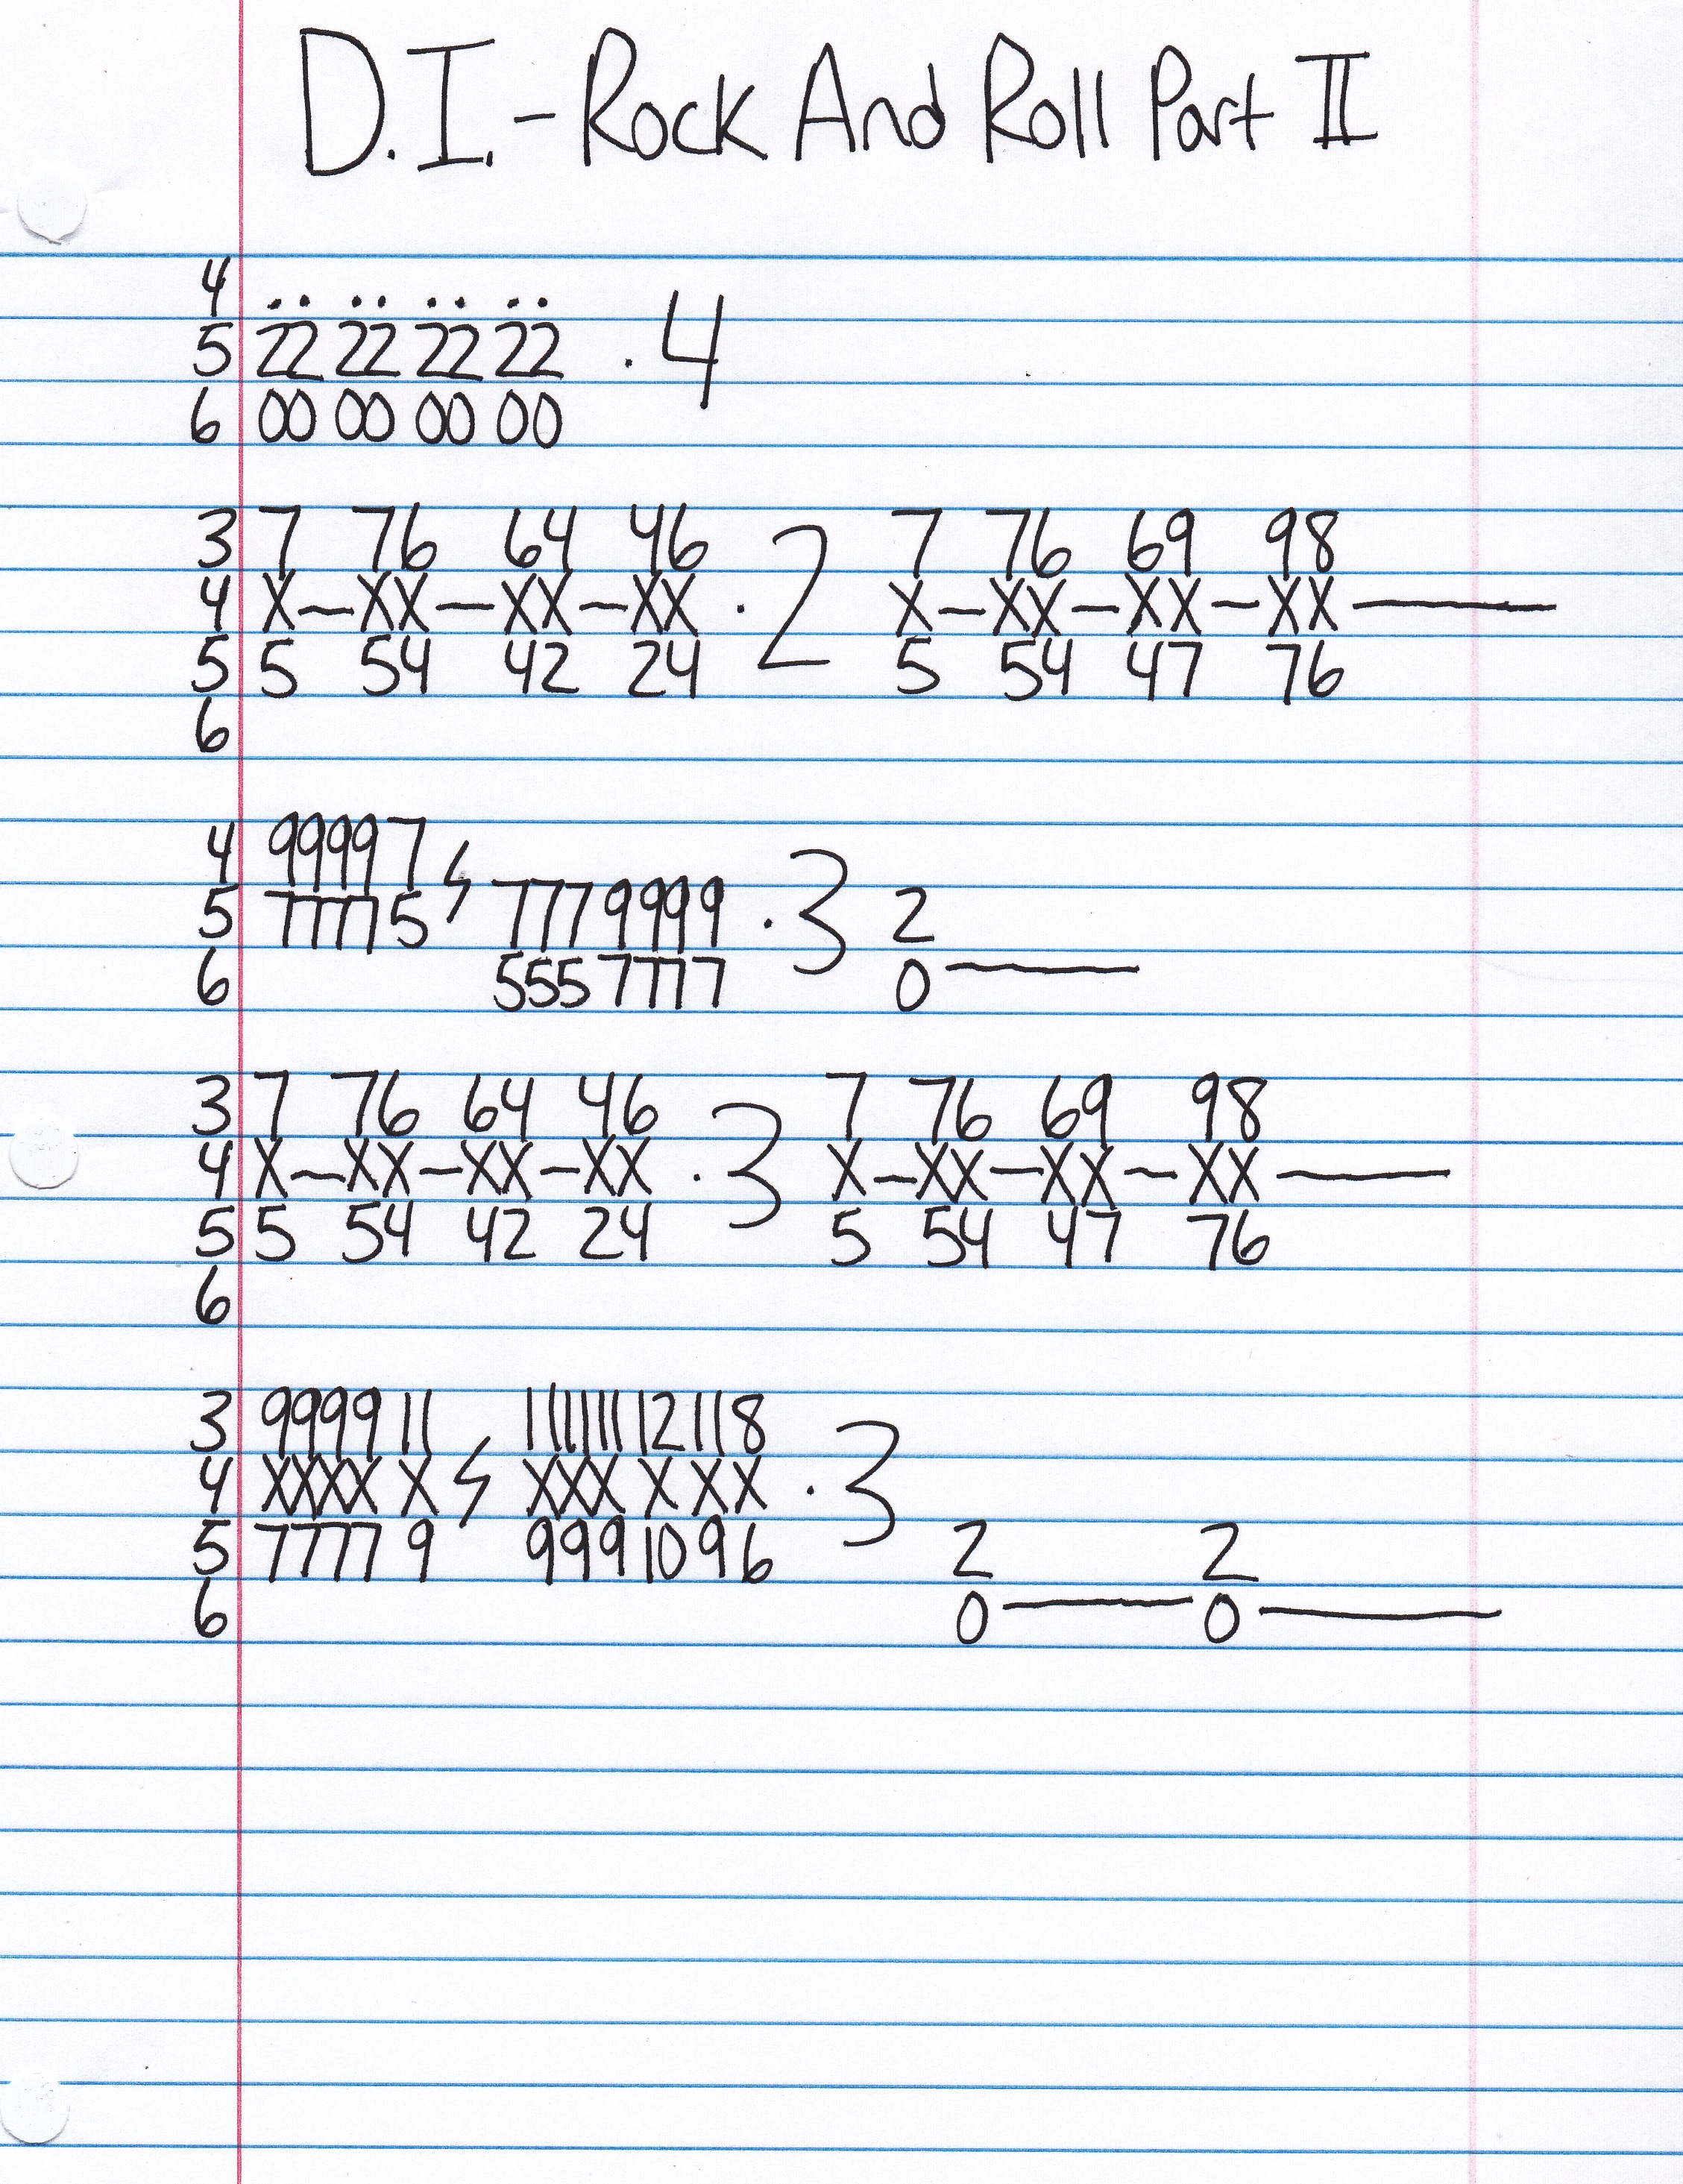 D.I. - Rock And Roll Part II
4 .. .. .. ..
5 22 22 22 22 . 4
6 00 00 00 00
3 7 76 64 46 7 76 69 98
4 X-XX-XX-XX . 2 X-XX-XX-XX-
5 5 54 42 24 5 54 47 76
6
4 99997
5 77775 7779999 . 3 2
6 5557777 0-
3 7 76 64 46 7 76 69 98
4 X-XX-XX-XX . 3 X-XX-XX-XX-
5 5 54 42 24 5 54 47 76
6
3 9999 11 111111 12 11 8
4 XXXX X XXX X X X . 3
5 7777 9 999 10 9 6 2 2
6 0-0-